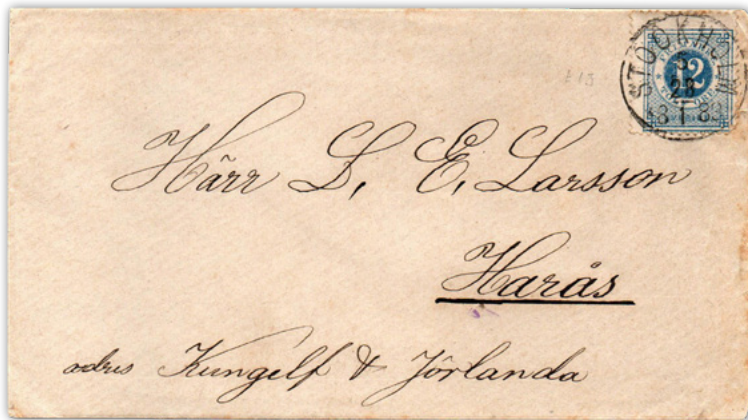 STOCKHOLM
28
12
£15
Härr L. E. Larsson
Harås
adres Kungelf & Jörlanda